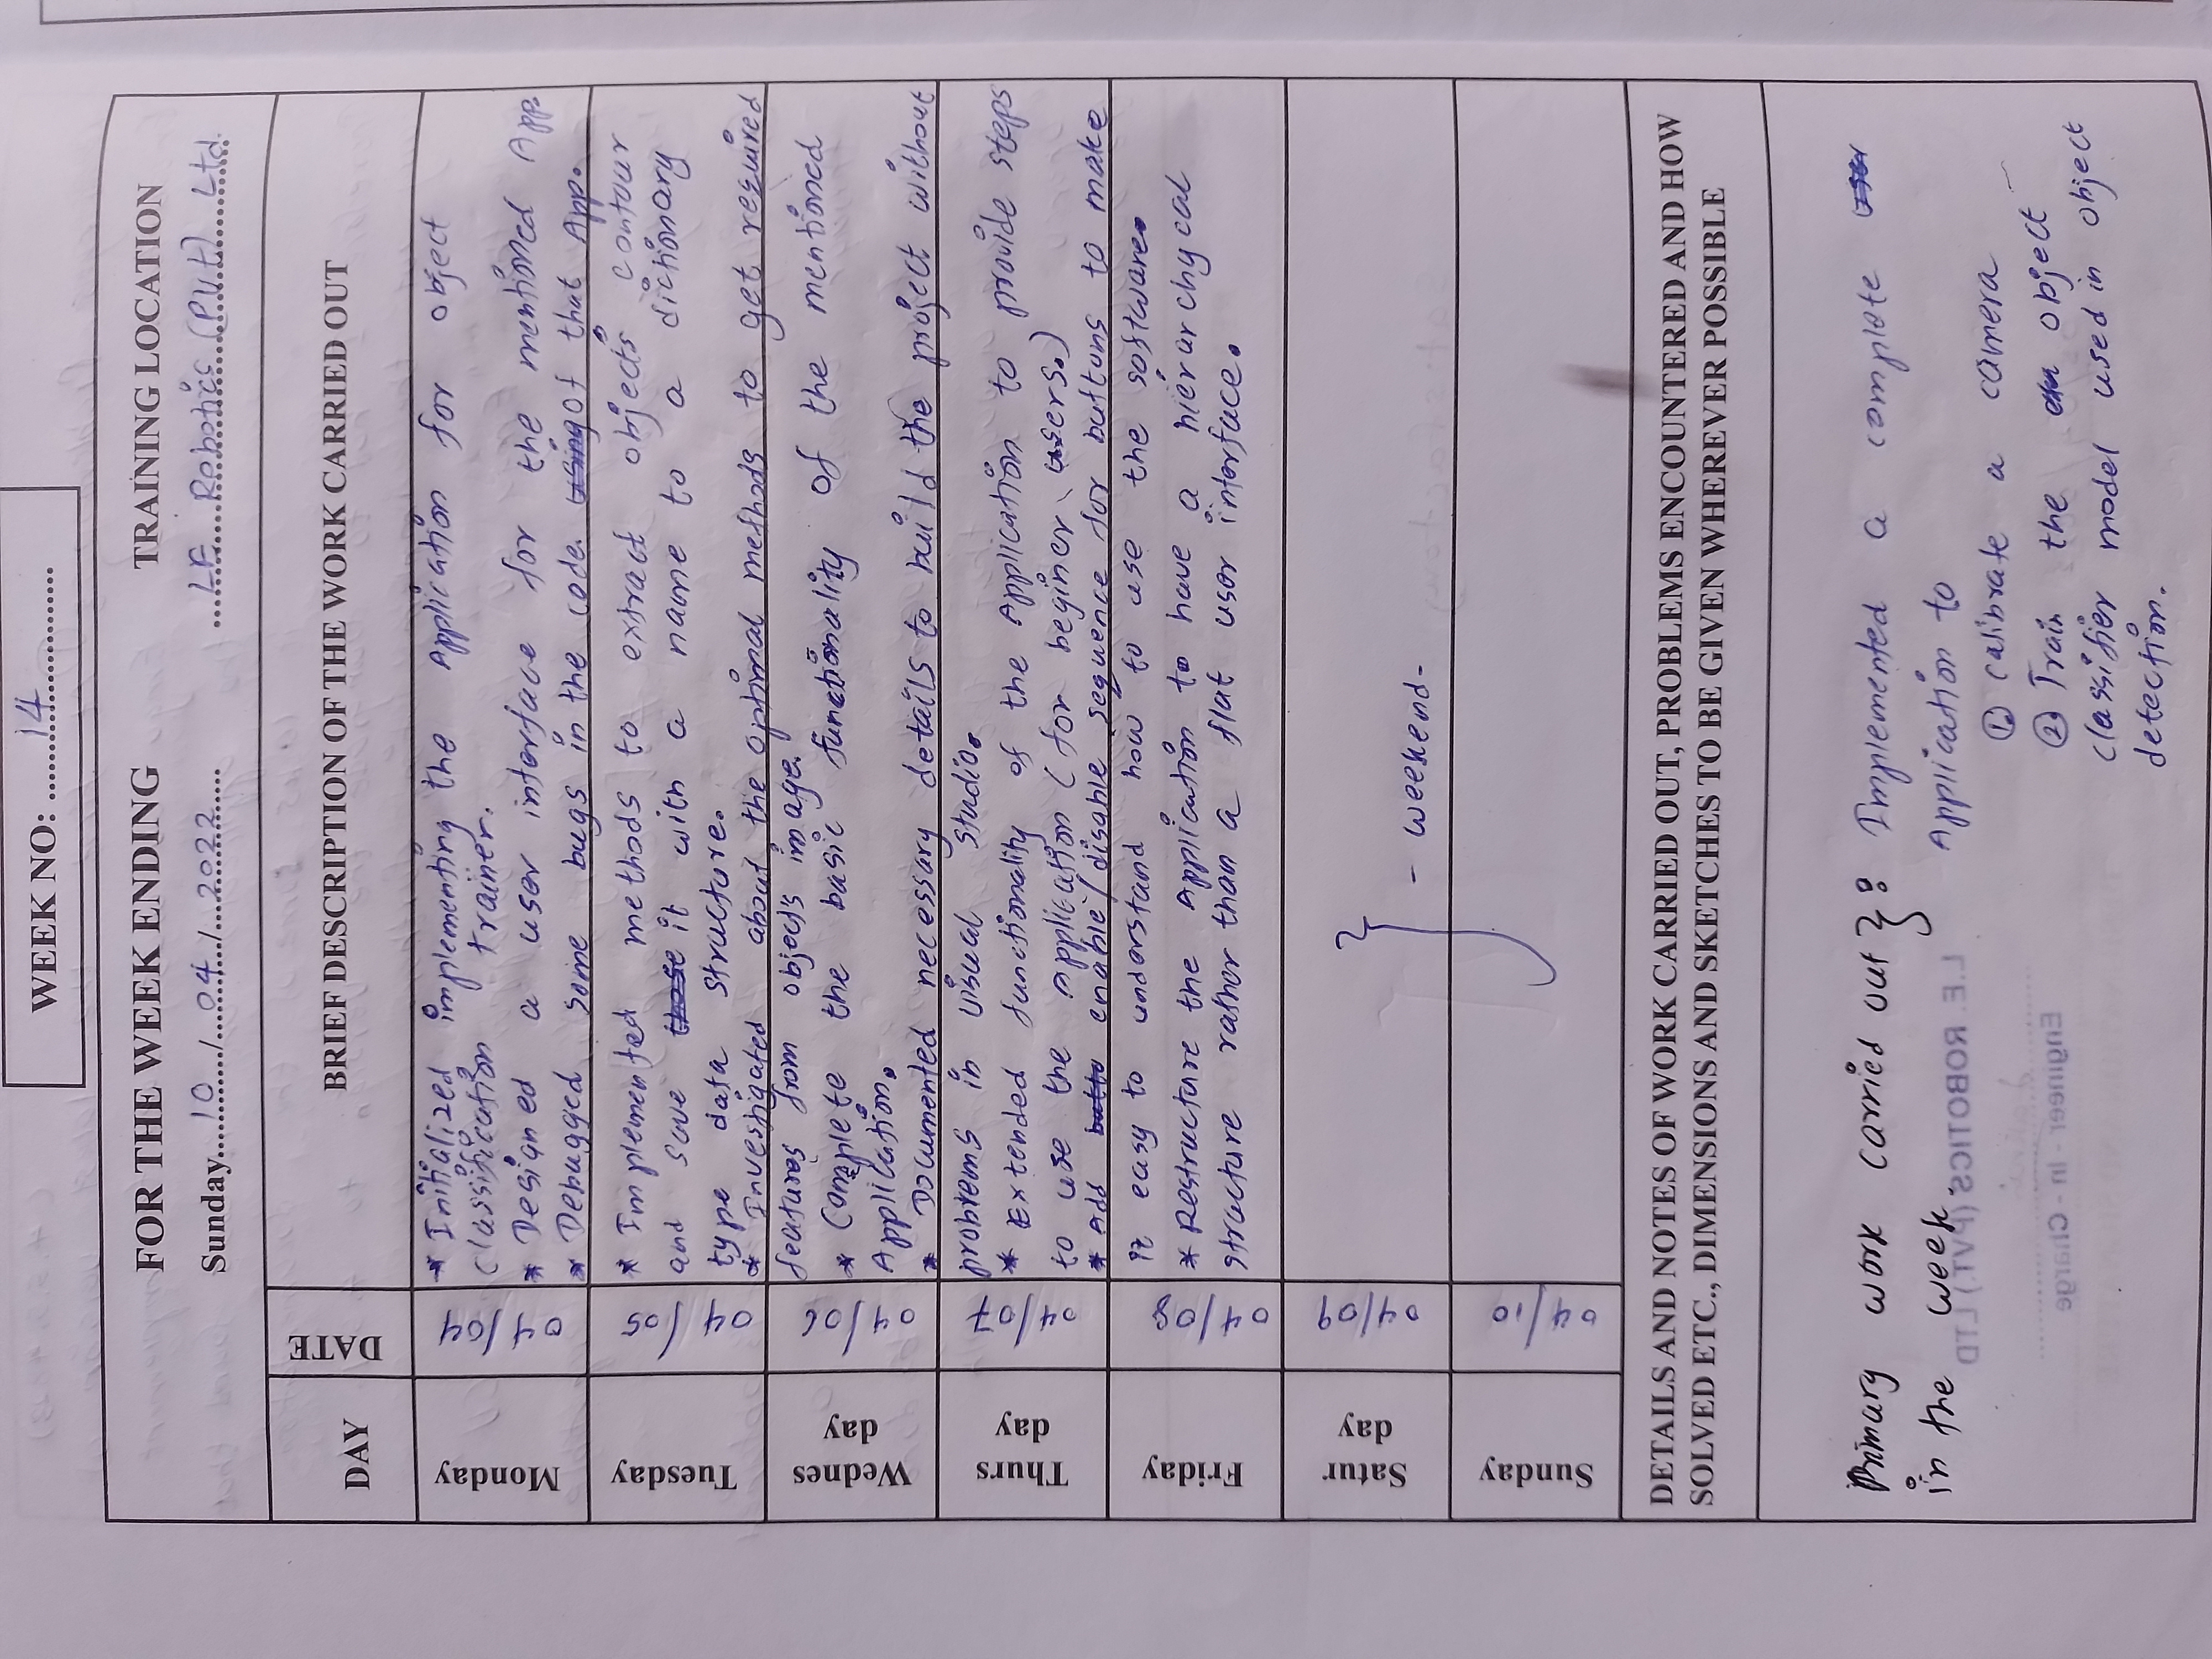 WEEK NO: ....14....
FOR THE WEEK ENDING
TRAINING LOCATION
Sunday....10..../....04..../....2022....
LE Robotics (Pvt) Ltd.
DAY
DATE
BRIEF DESCRIPTION OF THE WORK CARRIED OUT
Monday
04/04
* Initialized implementing the Application for object
classification trainer.
* Designed a user interface for the mentioned App.
* Debugged some bugs in the code. using of that App.
Tuesday
04/05
* Implemented methods to extract objects contour
and save those it with a name to a dictionary
type data structure.
* Investigated about the optimal methods to get required
Wednes
day
04/06
features from object's image.
* Complete the basic functionality of the mentioned
Application.
* Documented necessary details to build the project without
Thurs
day
04/07
problems in visual studio.
* Extended functionality of the Application to provide steps
to use the Application (for beginer users.)
* Add butto enable/disable sequence for buttons to make
Friday
04/08
it easy to understand how to use the software.
* Restructure the Application to have a hierarchycal
structure rather than a flat user interface.
Satur
day
04/09
- weekend-
Sunday
04/10
DETAILS AND NOTES OF WORK CARRIED OUT, PROBLEMS ENCOUNTERED AND HOW
SOLVED ETC., DIMENSIONS AND SKETCHES TO BE GIVEN WHEREVER POSSIBLE
Primary work carried out } : Implemented a complete user
in the week. Application to
① Calibrate a camera
② Train the object
classifier model used in object
detection.
L.E. ROBOTICS (PVT.) LTD
Engineer - In - Charge